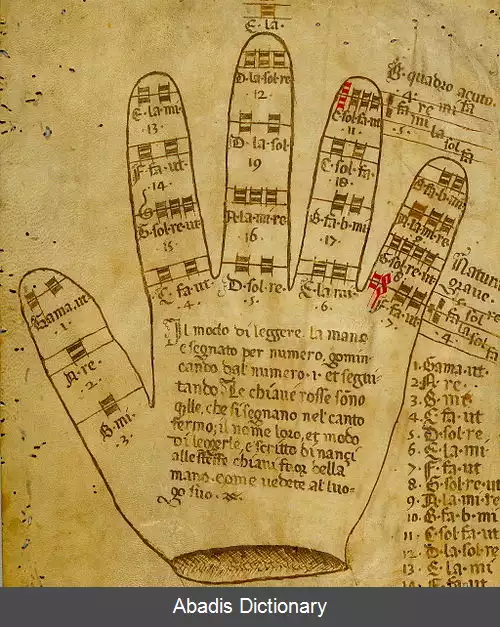 E·la·
D·la·sol·re
12·
E·la·mi·
·13·
D·la·sol·
19
C·sol·fa·ut
11·
C·sol·fa·
·18·
F·fa·ut
·14·
G·sol·re·ut
15·
A·la·mi·re·
·16·
B·fa·b·mi
·17·
C·fa·ut
·4·
D·sol·re·
·5·
E·la·mi·
·6·
B·fa·b·mi·
G·sol·re·ut
F·fa·ut·
·7·
B·quadro acuto·
·4·
fa re mi fa
mi la sol fa
·5·
Natura
grave·
fa sol
la sol
·4·
Gama·ut·
·1·
A·re·
·2·
B·mi·
3·
Il modo di leggere la mano
e segnato per numero, comin
cando dal numero ·1· et segui
tando· Le chiave rosse sono
q̃lle, che si segnano nel canto
fermo; il nome loro, et modo
di leggerle, e scritto di nanci
alle stesse chiavi fuor della
mano· come vedete al luo·
go suo·
1·Gama·ut·
2·A·re·
3·B·mi
4·C·fa·ut
5·D·sol·re·
6·E·la·mi
7·F·fa·ut
8·G·sol·re·ut
9·D·la·mi·re
10·B·fa·b·mi
11·C·sol·fa·ut
12·D·la·sol·re
13·E·la·mi
14·F·fa·ut
Abadis Dictionary